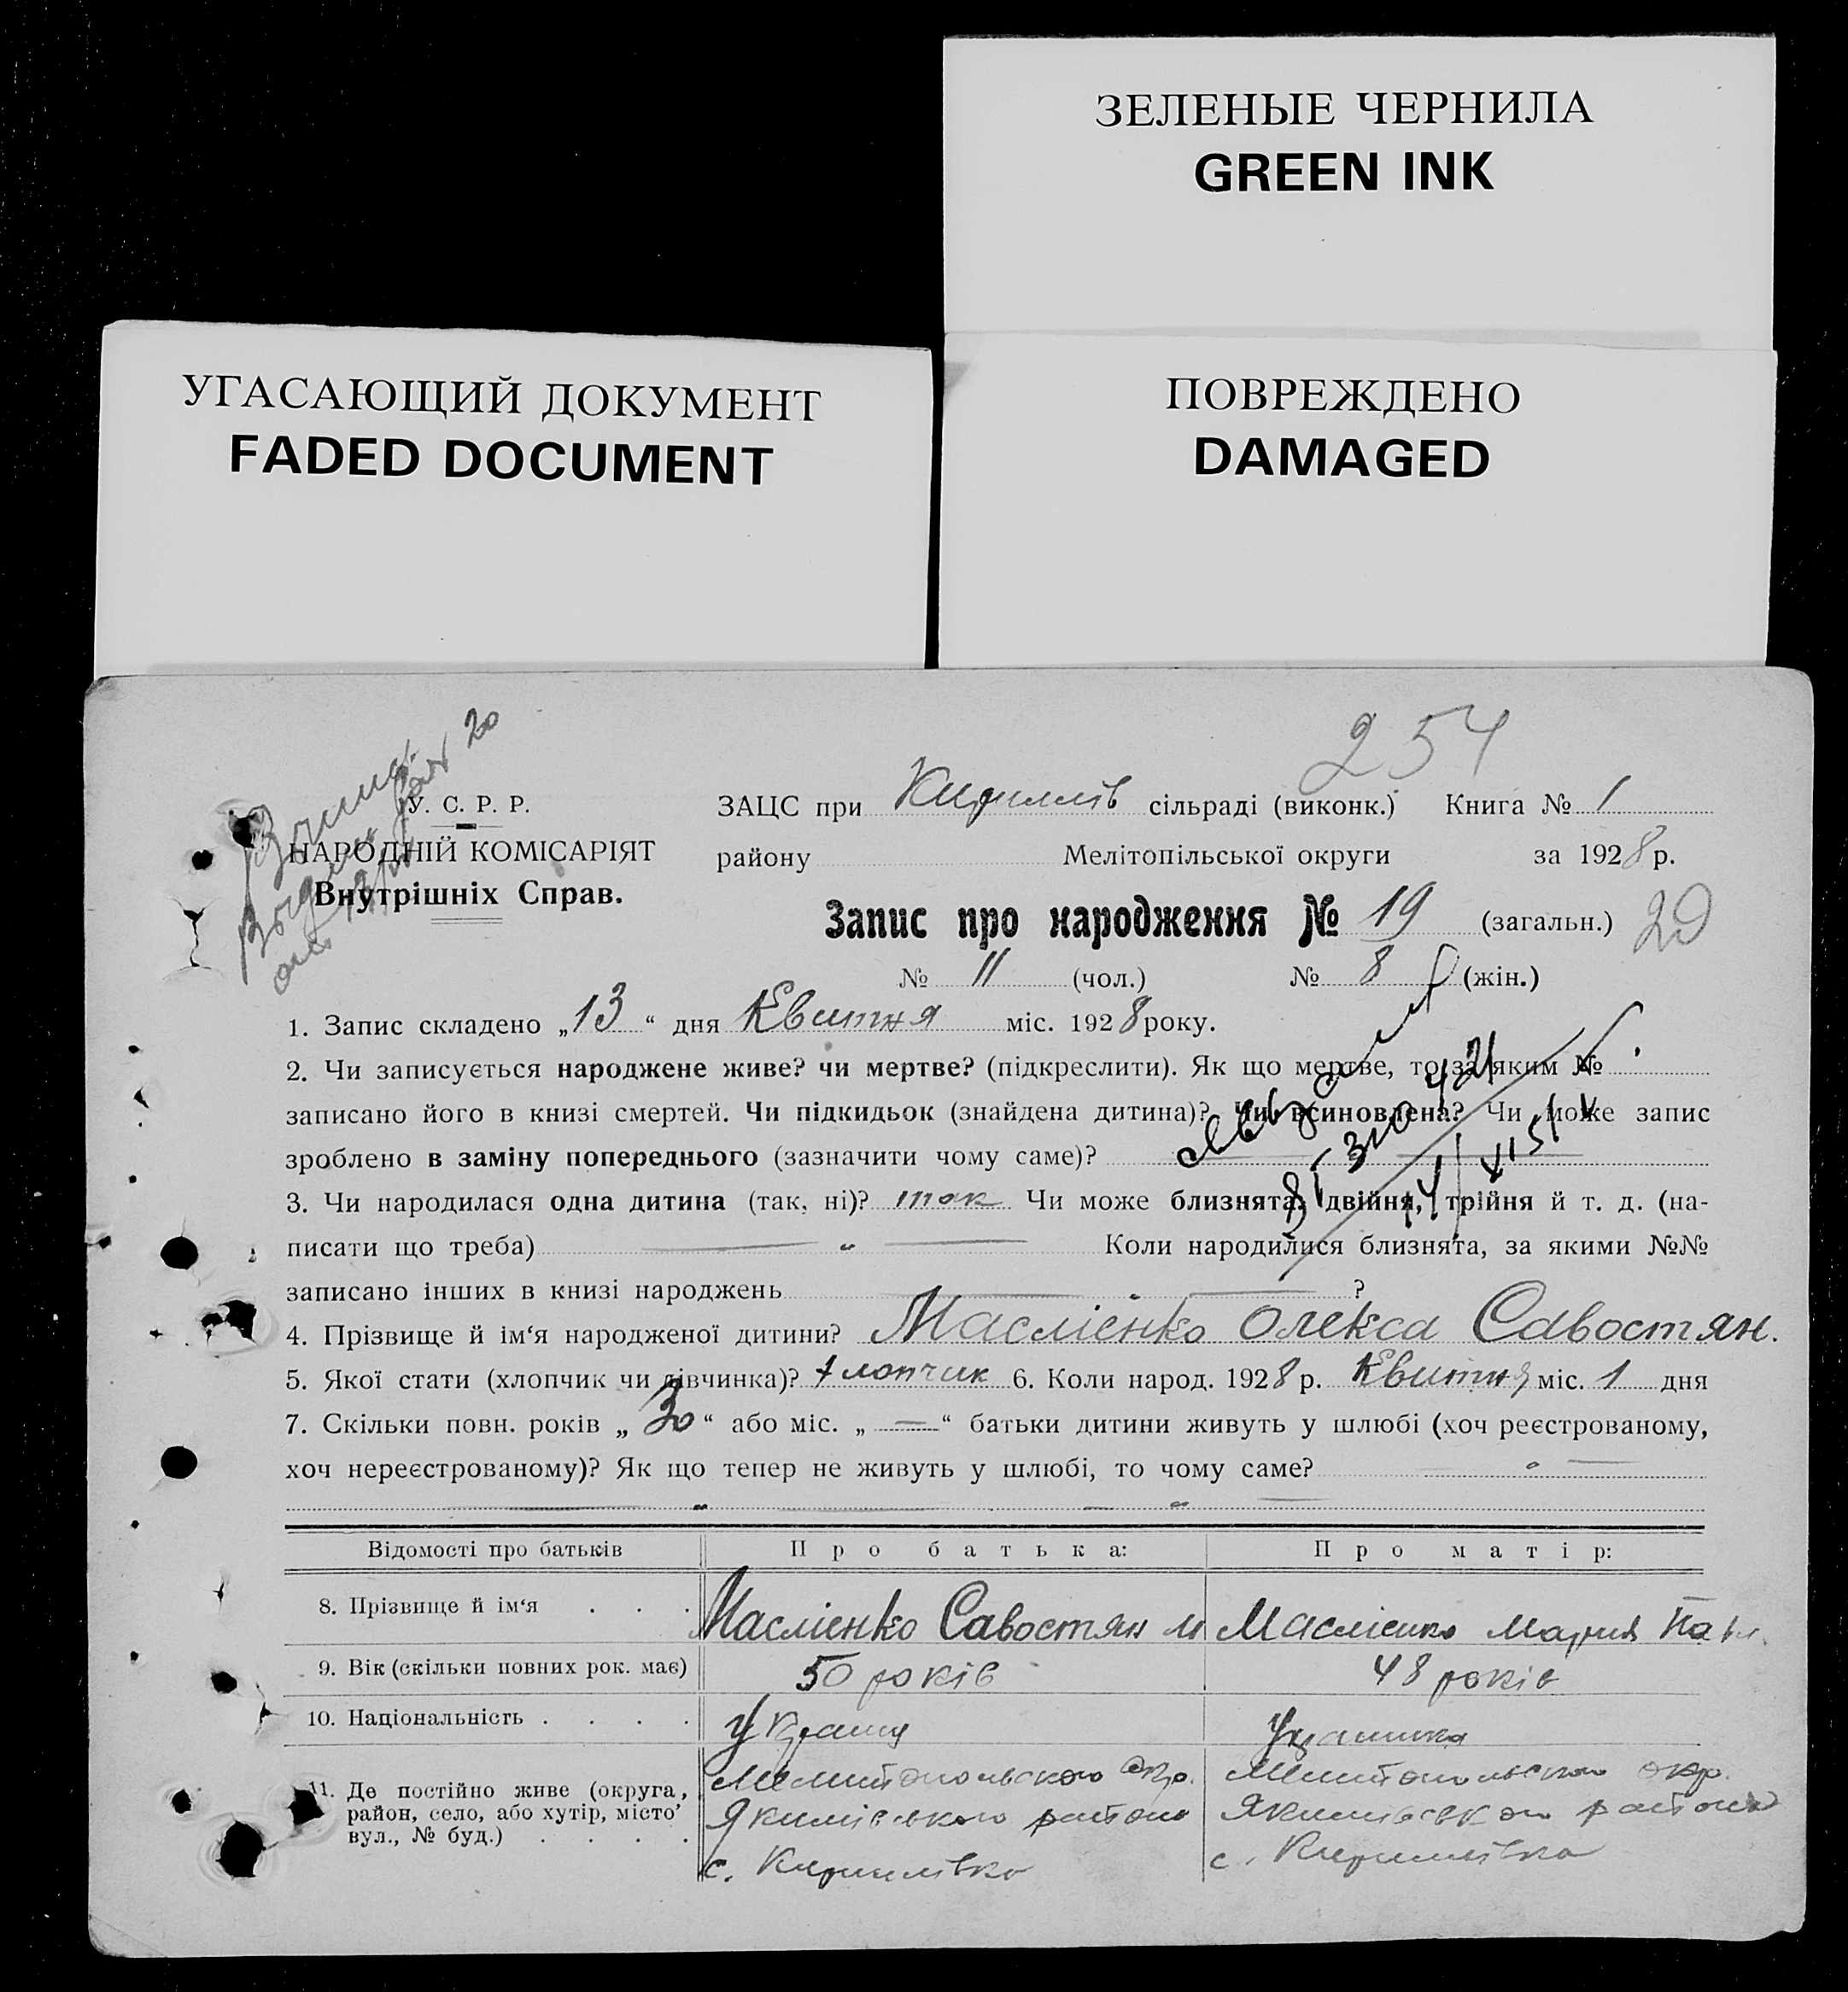 ЗЕЛЕНЫЕ ЧЕРНИЛА
GREEN INK
УГАСАЮЩИЙ ДОКУМЕНТ
FADED DOCUMENT
ПОВРЕЖДЕНО
DAMAGED
254
У. С. Р. Р.
НАРОДНІЙ КОМІСАРІЯТ
Внутрішніх Справ.
ЗАЦС при Кирилів сільраді (виконк.) Книга № 1
району Мелітопільської округи за 1928 р.
Запис про народження № 19 (загальн.) 20
№ 11 (чол.) № 8 (жін.)
1. Запис складено „13“ дня Квитня міс. 1928 року.
2. Чи записується народжене живе? чи мертве? (підкреслити). Як що мертве, то за яким №
записано його в книзі смертей. Чи підкидьок (знайдена дитина)? Чи всиновлена? Чи може запис
зроблено в заміну попереднього (зазначити чому саме)?
3. Чи народилася одна дитина (так, ні)? так Чи може близнята, двійня, трійня й т. д. (на-
писати що треба) Коли народилися близнята, за якими №№
записано інших в книзі народжень ?
4. Прізвище й ім‘я народженої дитини? Маслієнко Олекса Савостян.
5. Якої стати (хлопчик чи дівчинка)? хлопчик 6. Коли народ. 1928 р. Квитня міс. 1 дня
7. Скільки повн. років „30“ або міс. „—“ батьки дитини живуть у шлюбі (хоч реєстрованому,
хоч нереєстрованому)? Як що тепер не живуть у шлюбі, то чому саме?
Відомості про батьків Про батька: Про матір:
8. Прізвище й ім‘я . . . Маслієнко Савостян М Маслієнко Мария Пав.
9. Вік (скільки повних рок. має) 50 років 48 років
10. Національність . . . . Україн Українка
11. Де постійно живе (округа, район, село, або хутір, місто вул., № буд.) . . . .
Мелитопольского Окр. Мелитопольского окр.
Якимівського району Якимівського району
с. Кирилівка с. Кирилівка